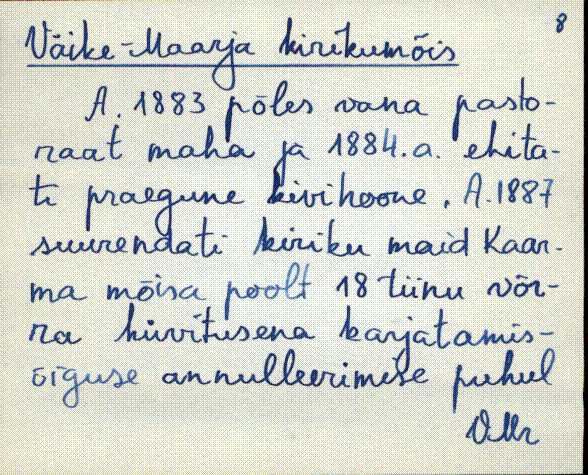 8
Väike-Maarja kirikumõis
A. 1883 põles vana pasto-
raat maha ja 1884.a. ehita-
ti praegune kivihoone. A. 1887
suurendati kiriku maid Kaar-
ma mõisa poolt 18 tiinu võr-
ra hüvitusena karjatamis-
õiguse annulleerimise puhul